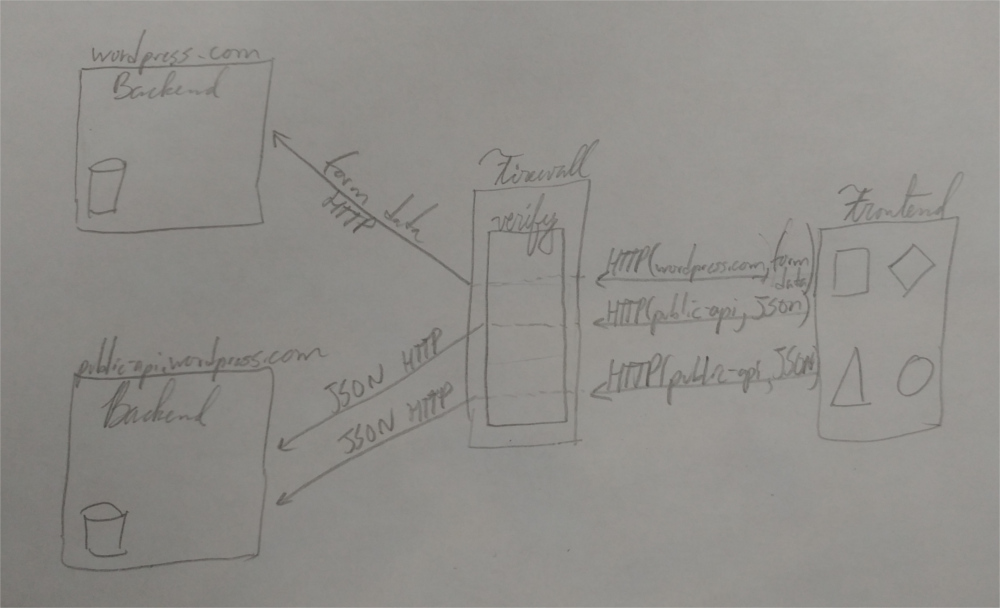 wordpress.com
Backend
form data
HTTP
Firewall
verify
Frontend
HTTP(wordpress.com, form
data)
HTTP(public-api, JSON)
HTTP(public-api, JSON)
public-api.wordpress.com
Backend
JSON HTTP
JSON HTTP